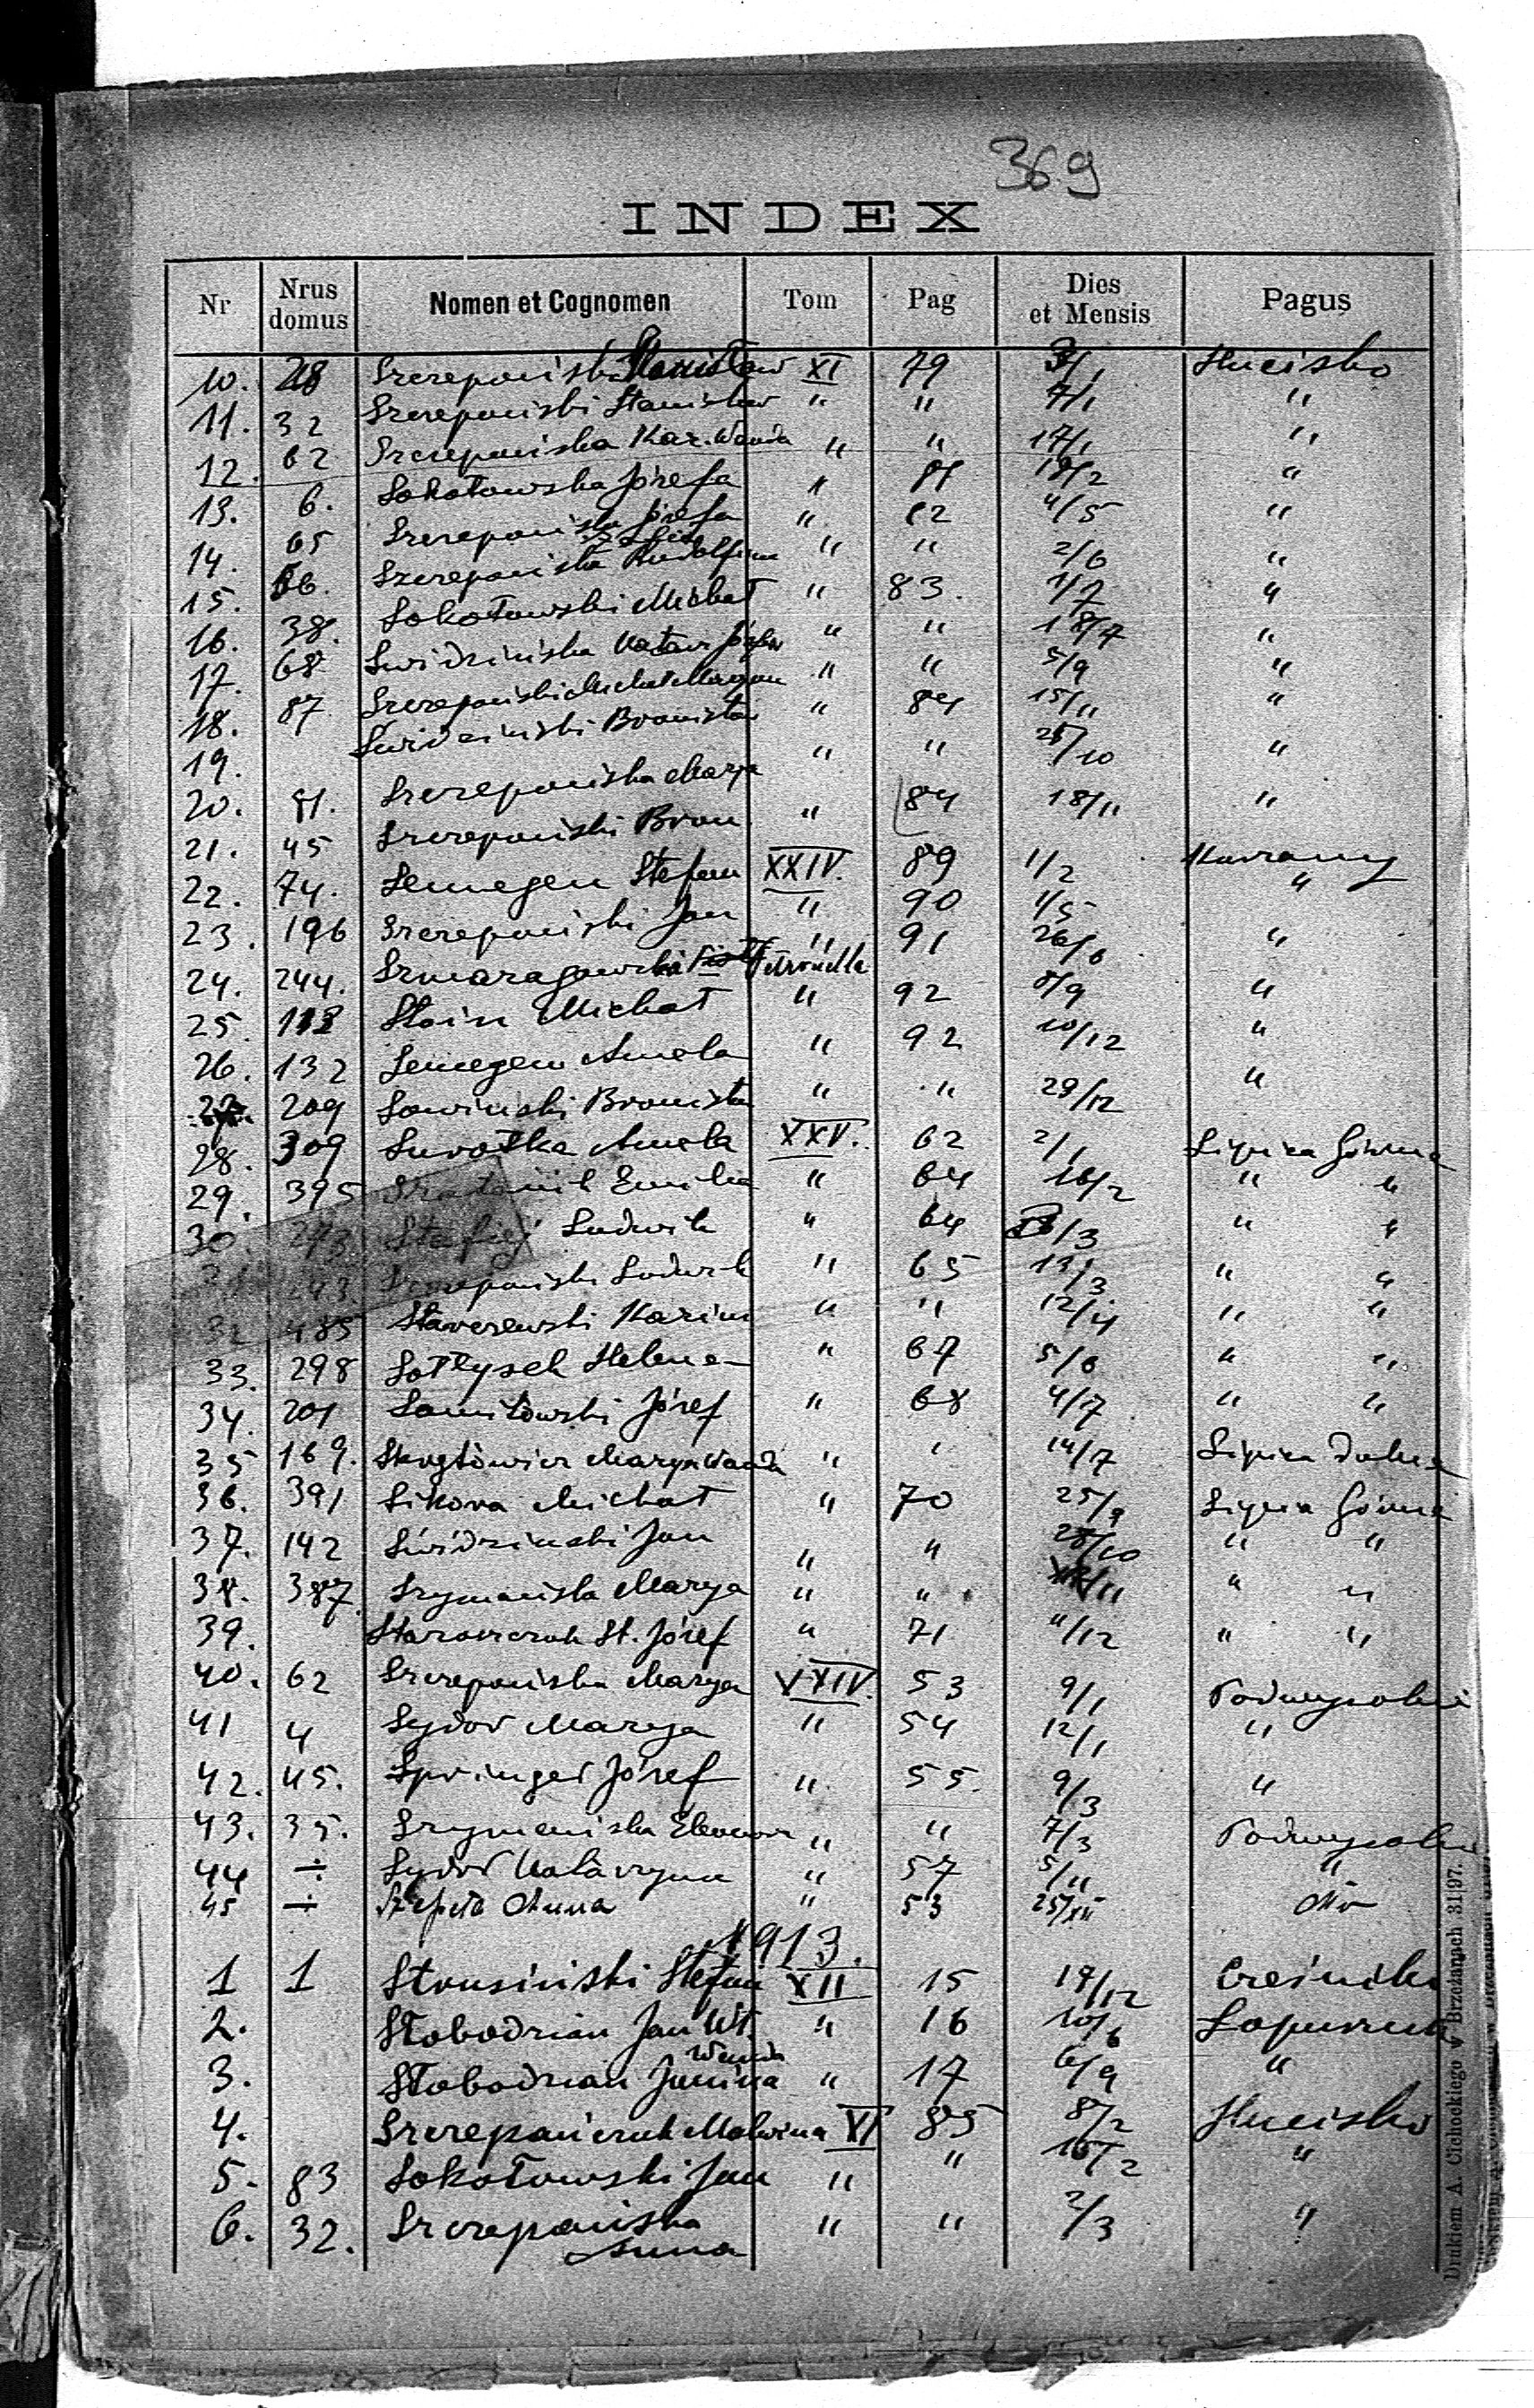 369
INDEX
Nr | Nrus domus | Nomen et Cognomen | Tom | Pag | Dies et Mensis | Pagus
10. 28 Szczepański Stanisław XI 79 3/1 Hucisko
11. 32 Szczepański Stanisław " " 7/1 "
12. 62 Szczepańska Kaz. Wanda " " 17/1 "
13. 6. Sokołowska Józefa " 81 18/2 "
14. 65 Szczepańska Józefa " 82 4/5 "
15. 66. Szczepańska Rudolfina " " 2/6 "
16. 38. Sokołowski Michał " 83. 1/7 "
17. 68 Świdzińska Katarz Józefa " " 18/7 "
18. 87 Szczepański Michał Maryan " " 5/9 "
19. Świdziński Bronisław " 84 15/11 "
20. 81. Szczepańska Marja " " 25/10 "
21. 45 Szczepański Bron. " 84 18/11 "
22. 74. Semegen Stefan XXIV. 89 1/2 "
23. 196 Szczepański Jan " 90 1/5
24. 244. Szmaragowska Petronella " 91 26/6 "
25. 118 Stain Michał " 92 8/9 "
26. 132 Semegen Amela " 92 10/12 "
27. 209 Sawiński Bronisła " " 29/12 "
28. 309 Surotka Amela XXV. 62 2/1 Lipica Górna
29. 395 Emilia " 64 16/2 " "
30. 273 Ludwik " 64 /3 " "
243. Szczepański Ludwik " 65 13/3 " "
32 485 Starczewski Kazim " " 12/4 " "
33. 298 Sołtysek Helena " 67 5/6 " "
34. 201 Samiłowski Józef " 68 4/7 " "
35 169. Marya Wanda " " 14/7 Lipica Dolna
36. 391 Sikora Michał " 70 25/9 Lipica Górna
37. 142 Świdzinski Jan " " 28/10 " "
38. 387. Szymańska Marya " " /11 " "
39. St. Józef " 71 11/12 " "
40. 62 Szczepańska Marya XXIV. 53 9/1 Podwysokie
41 4 Sydor Marya " 54 12/1 "
42. 45. Springer Józef " 55. 9/3 "
43. 35. Szymańska Eleonor " " 7/3 Podwysokie
44 ÷ Sydor Katarzyna " 57 5/11 "
45 ÷ Anna " 53 25/XII
1913.
1 1 Strusiński Stefan XII 15 19/12
2. Słobodzian Jan Wł. " 16 10/6
3. Słobodzian Janina Wanda " 17 6/9 "
4. Szczepańczuk Malwina XI 85 8/2 Hucisko
5. 83 Sokołowski Jan " " 16/2 "
6. 32. Szczepańska Anna " " 2/3 "
Drukiem A. Cichockiego w Brzeżanach 31|97.